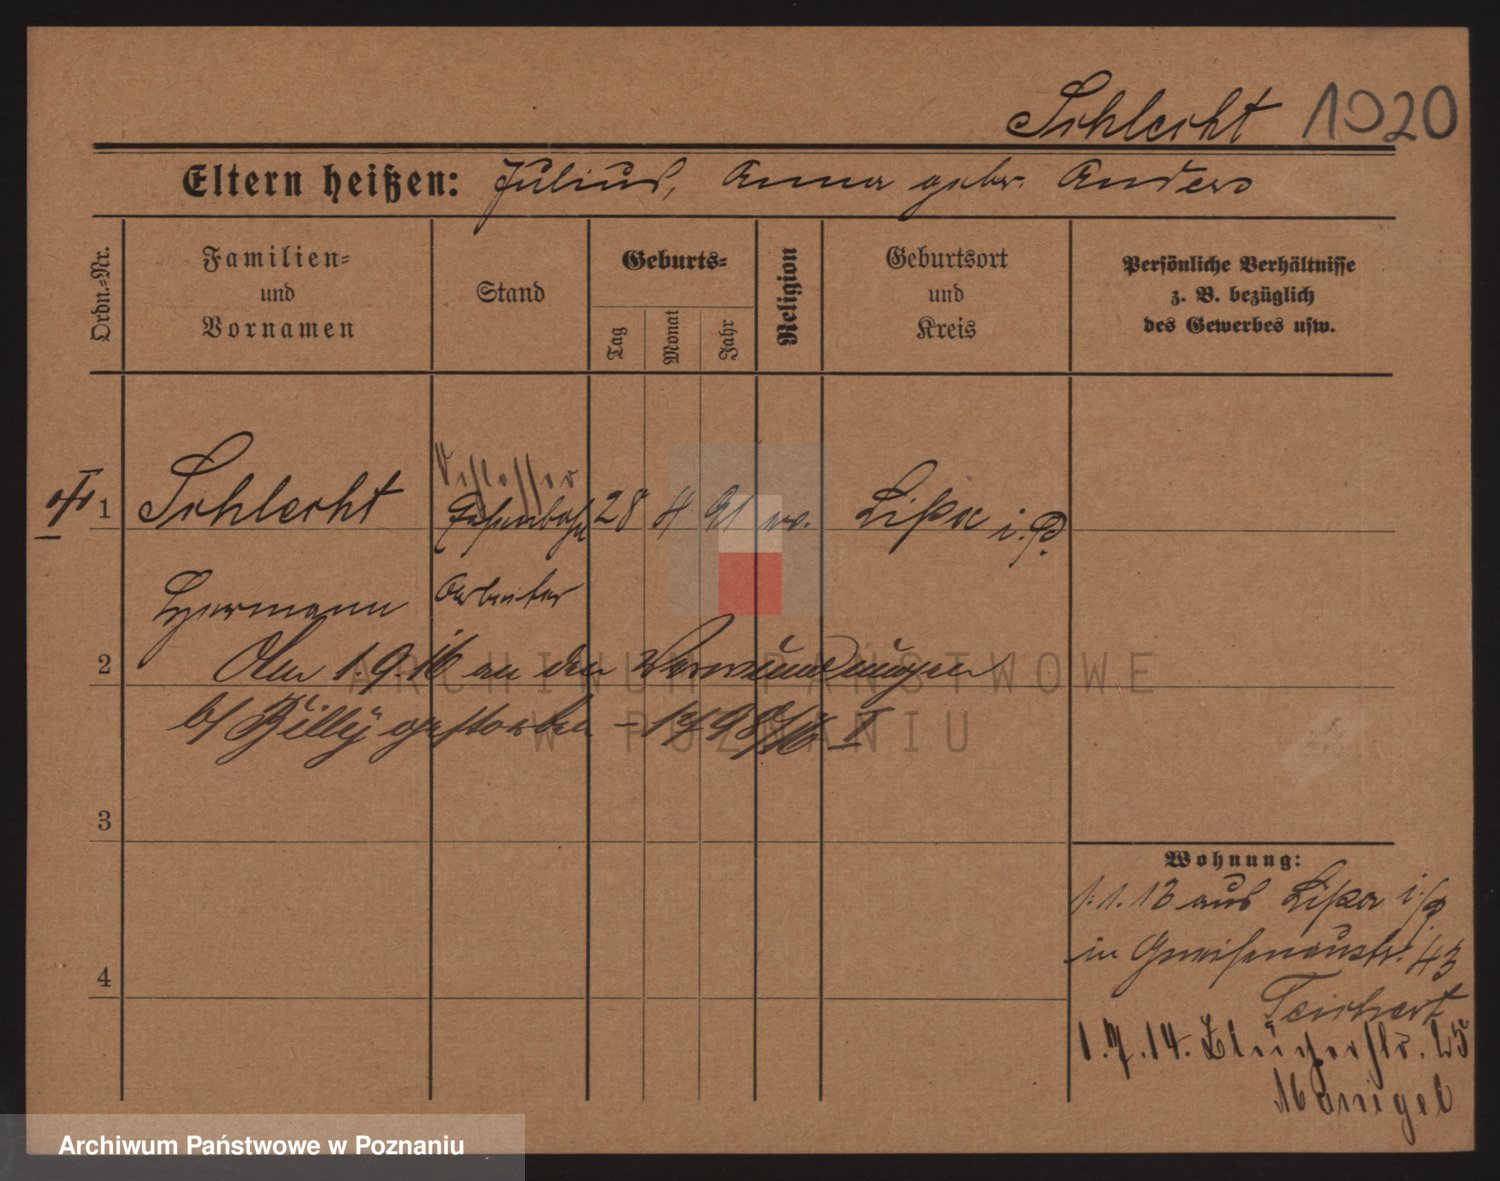 Schlecht 1920
Eltern heißen: Julius, Anna gebr. Anders
Ordn.-Nr.
Familien-
und
Vornamen
Stand
Geburts-
Tag
Monat
Jahr
Religion
Geburtsort
und
Kreis
Persönliche Verhältnisse
z. B. bezüglich
des Gewerbes usw.
1 Schlecht Schlosser
Eisenbahn 28 4 91 ev. Lissa i. P.
Hermann Arbeiter
2 Am 1.9.16 an den Verwundungen
b/ gestorben
3
4
Wohnung:
1.1.13 aus Lissa i/P
in Gneisenaustr. 43
Teichert
1.7.14. Blücherstr. 25
ARCHIWUM PAŃSTWOWE
W POZNANIU
Archiwum Państwowe w Poznaniu